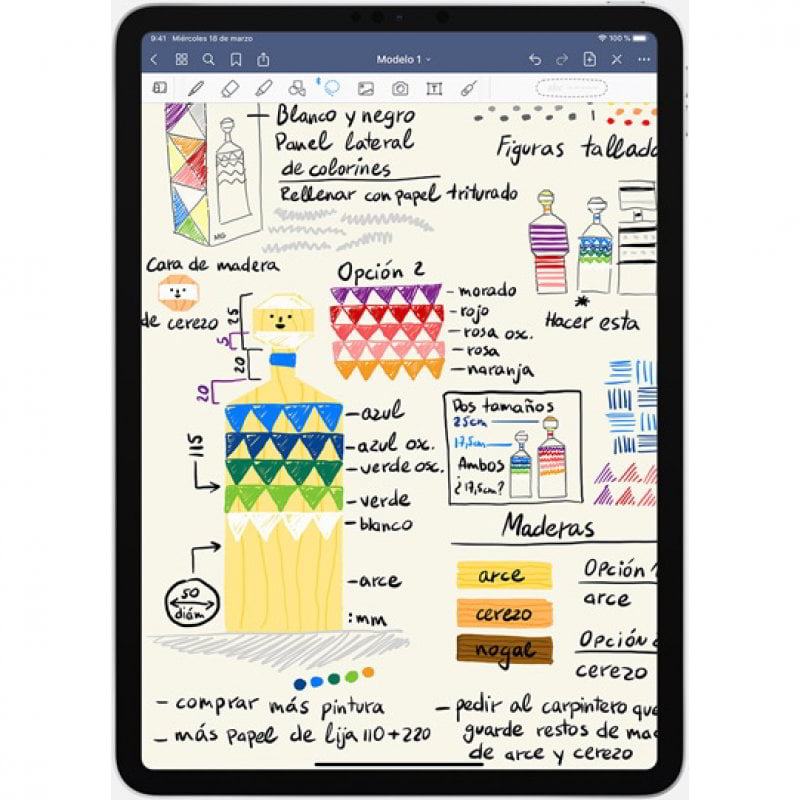 9:41 Miércoles 18 de marzo
100 %
Modelo 1
Blanco y negro
Panel lateral
de colorines
Rellenar con papel triturado
MG
Figuras tallada
Cara de madera
de cerezo
25
5
20
20
115
50
diám
Opción 2
morado
rojo
rosa osc.
rosa
naranja
Hacer esta
azul
azul osc.
verde osc.
verde
blanco
arce
: mm
Dos tamaños
25cm
17,5cm
Ambos
¿17,5cm?
Maderas
arce
cerezo
nogal
Opción 1
arce
Opción
cerezo
- comprar más pintura
- más papel de lija 110 + 220
- pedir al carpintero que
guarde restos de ma
de arce y cerezo